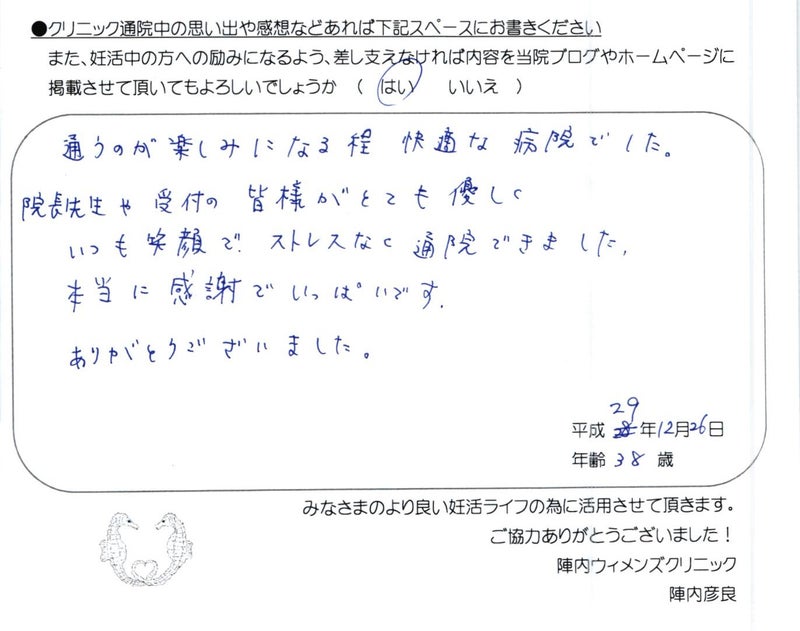 ●クリニック通院中の思い出や感想などあれば下記スペースにお書きください
また、妊活中の方への励みになるよう、差し支えなければ内容を当院ブログやホームページに
掲載させて頂いてもよろしいでしょうか （ はい　いいえ ）
通うのが楽しみになる程 快適な 病院でした。
院長先生や 受付の 皆様がとても 優しく
いつも笑顔で、ストレスなく 通院できました。
本当に 感謝で いっぱいです。
ありがとうございました。
29
平成 28 年12月26日
年齢 38 歳
みなさまのより良い妊活ライフの為に活用させて頂きます。
ご協力ありがとうございました！
陣内ウィメンズクリニック
陣内彦良